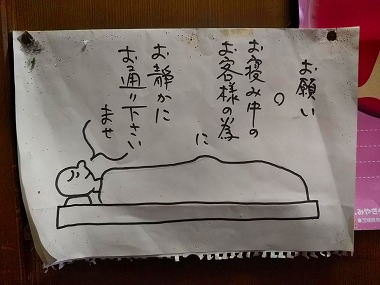 お願い
お寝み中の
お客様の為
に
お静かに
お通り下さい
ませ